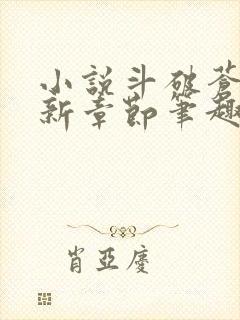 小説斗破蒼
新章節筆趣
肖亞慶